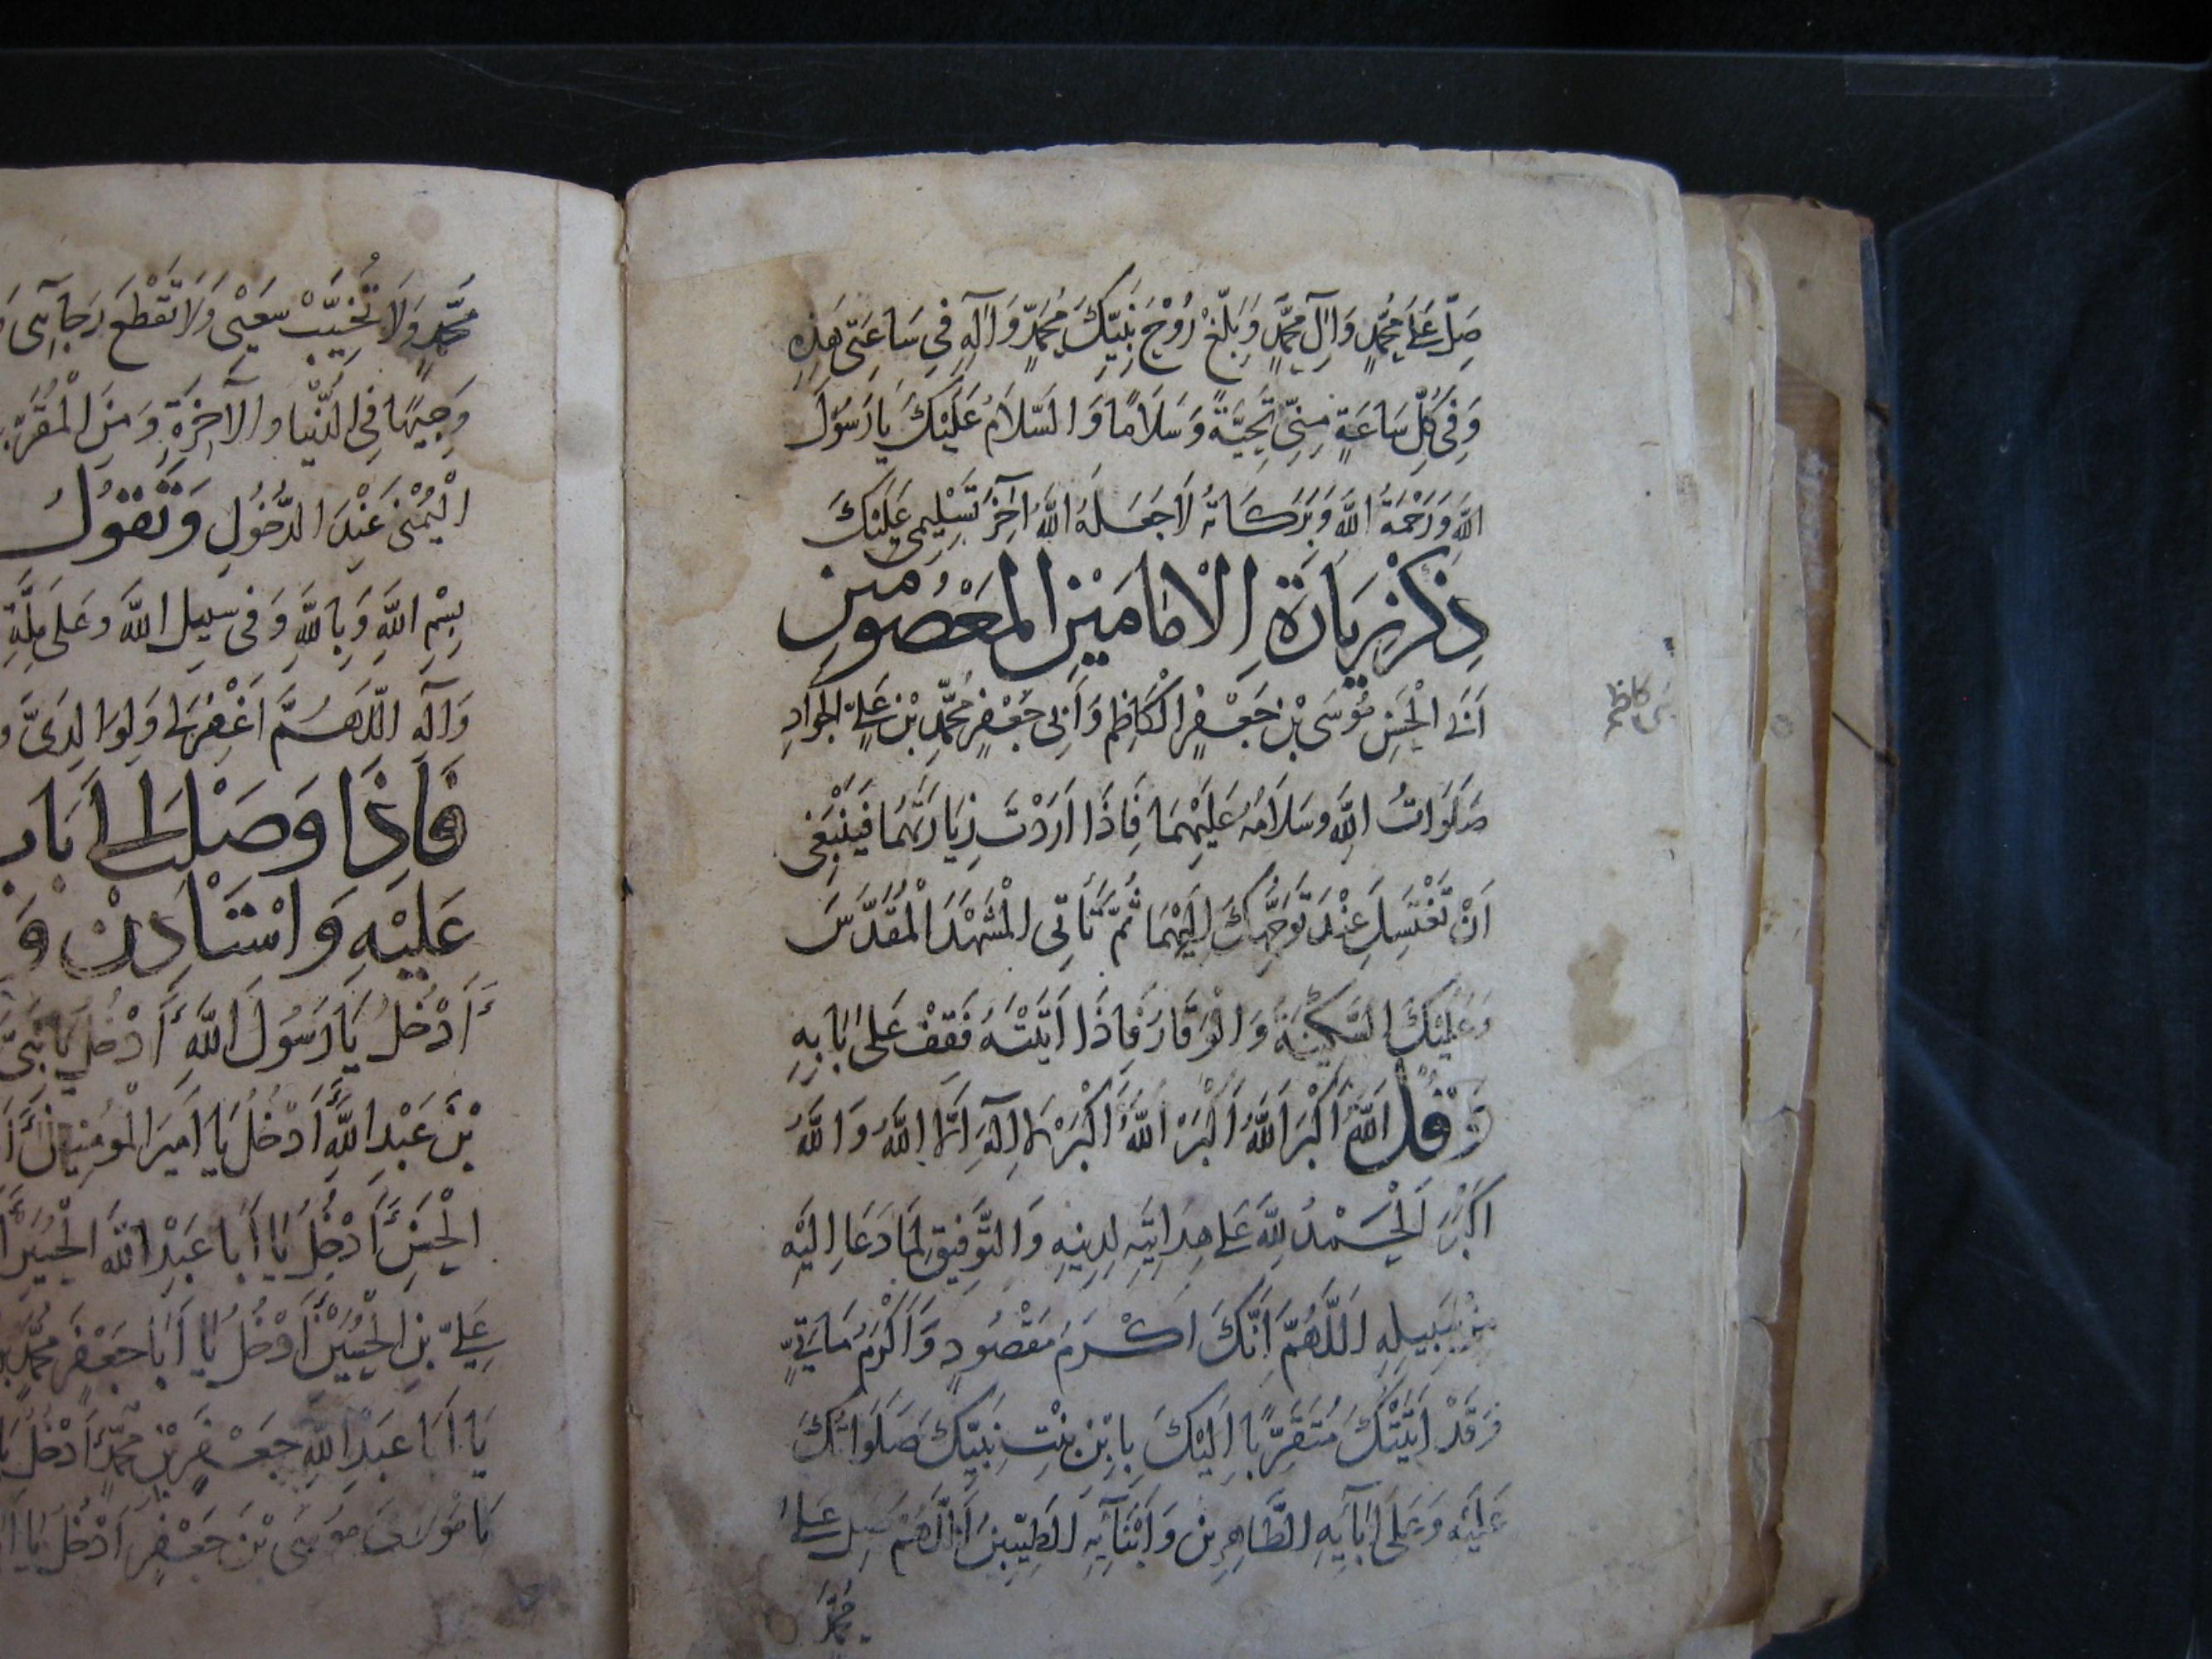 صَلِّ عَلَى مُحَمَّدٍ وَآلِ مُحَمَّدٍ وَبَلِّغْ رُوْحَ نَبِيِّكَ مُحَمَّدٍ وَآلِهِ فِي سَاعَتِي هَذِهِ
وَفِي كُلِّ سَاعَةٍ مِنِّي تَحِيَّةً وَسَلَامًا وَالسَّلَامُ عَلَيْكَ يَا رَسُولَ
اللَّهِ وَرَحْمَةُ اللَّهِ وَبَرَكَاتُهُ لَا جَعَلَهُ اللَّهُ آخِرَ تَسْلِيمِي عَلَيْكَ
ذِكْرُ زِيَارَةِ الْامَامَيْنِ الْمَعْصُومَيْنِ
أَبِي الْحَسَنِ مُوسَى بْنِ جَعْفَرٍ الْكَاظِمِ وَأَبِي جَعْفَرٍ مُحَمَّدِ بْنِ عَلِيٍّ الْجَوَادِ
صَلَوَاتُ اللَّهِ وَسَلَامُهُ عَلَيْهِمَا فَاِذَا اَرَدْتَ زِيَارَتَهُمَا فَيَنْبَغِي
اَنْ تَغْتَسِلَ عِنْدَ تَوَجُّهِكَ اِلَيْهِمَا ثُمَّ تَأْتِي الْمَشْهَدَ الْمُقَدَّسَ
وَعَلَيْكَ السَّكِينَةُ وَالْوَقَارَ فَاِذَا اَتَيْتَهُ فَقِفْ عَلَى بَابِهِ
وَقُلْ اَللَّهُ اَكْبَرُ اَللَّهُ اَكْبَرُ اَللَّهُ اَكْبَرُ لَا اِلَهَ اِلَّا اللَّهُ وَاللَّهُ
اَكْبَرُ اَلْحَمْدُ لِلَّهِ عَلَى هِدَايَتِهِ لِدِينِهِ وَالتَّوْفِيقِ لِمَا دَعَا اِلَيْهِ
مِنْ سَبِيلِهِ اَللَّهُمَّ اِنَّكَ اَكْرَمُ مَقْصُودٍ وَاَكْرَمُ مَأْتِيٍّ
وَقَدْ اَتَيْتُكَ مُتَقَرِّبًا اِلَيْكَ بِابْنِ بِنْتِ نَبِيِّكَ صَلَوَاتُكَ
عَلَيْهِ وَعَلَى اٰبَآئِهِ الطَّاهِرِينَ وَاَبْنَآئِهِ الطَّيِّبِينَ اَللَّهُمَّ صَلِّ عَلَى
مُحَمَّدٍ
كاظم
مُحَمَّدٍ وَلَا تُخَيِّبْ سَعْيِي وَلَا تَقْطَعْ رَجَآئِي
وَجِيهًا فِي الدُّنْيَا وَالْآخِرَةِ وَمِنَ الْمُقَرَّبِ
الْيُمْنَى عِنْدَ الدُّخُولِ وَتَقُولُ
بِسْمِ اللَّهِ وَبِاللَّهِ وَفِي سَبِيلِ اللَّهِ وَعَلَى مِلَّةِ
وَآلِهِ اَللَّهُمَّ اغْفِرْ لِي وَلِوَالِدَيَّ و
فَاِذَا وَصَلْتَ اِلَى بَاب
عَلَيْهِ وَاسْتَاذِنْ وَ
ءَأَدْخُلُ يَا رَسُولَ اللَّهِ ءَأَدْخُلُ يَا نَبِيَّ
بْنَ عَبْدِ اللَّهِ ءَأَدْخُلُ يَا اَمِيرَ الْمُؤْمِنِينَ
الْحَسَنِ ءَأَدْخُلُ يَا اَبَا عَبْدِ اللَّهِ الْحُسَيْنَ
عَلِيَّ بْنِ الْحُسَيْنِ ءَأَدْخُلُ يَا اَبَا جَعْفَرٍ مُحَمَّدَ بْن
يَا اَبَا عَبْدِ اللَّهِ جَعْفَرَ بْنَ مُحَمَّدٍ ءَأَدْخُلُ يَا
مُوسَى بْنَ جَعْفَرٍ ءَأَدْخُلُ يَا